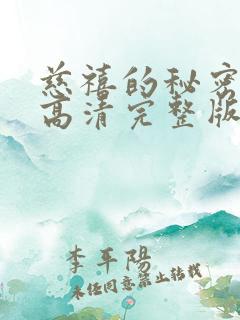 慈禧的秘密
高清完整版
李平陽
未经同意禁止转载